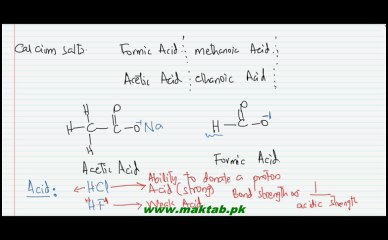 Calcium salts. Formic Acid methanoic Acid.
Acetic Acid ethanoic Acid
H O O
H-C-C-O⁻¹Na H-C-O⁻¹
H
Acetic Acid Formic Acid
Ability to donate a proton
Acid: HCl Acid (strong) Bond strength ∝ 1
HF Weak Acid acidic strength
www.maktab.pk